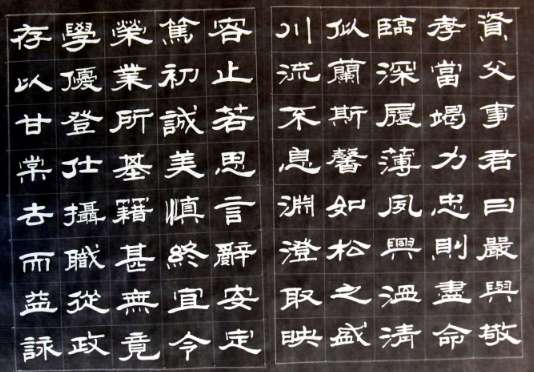 資父事君曰嚴與敬
孝當竭力忠則盡命
臨深履薄夙興溫清
似蘭斯馨如松之盛
川流不息淵澄取映
容止若思言辭安定
篤初誠美慎終宜令
榮業所基籍甚無竟
學優登仕攝職從政
存以甘棠去而益詠